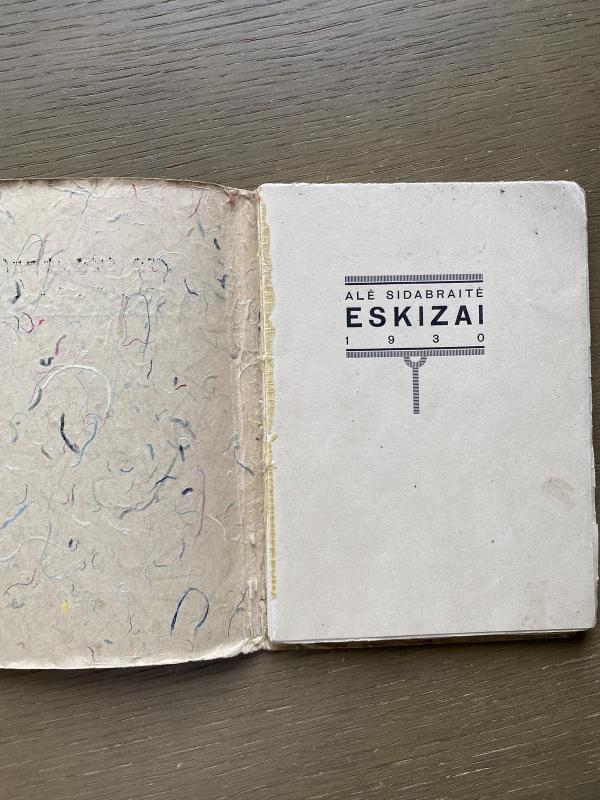 ALĖ SIDABRAITĖ
ESKIZAI
1930